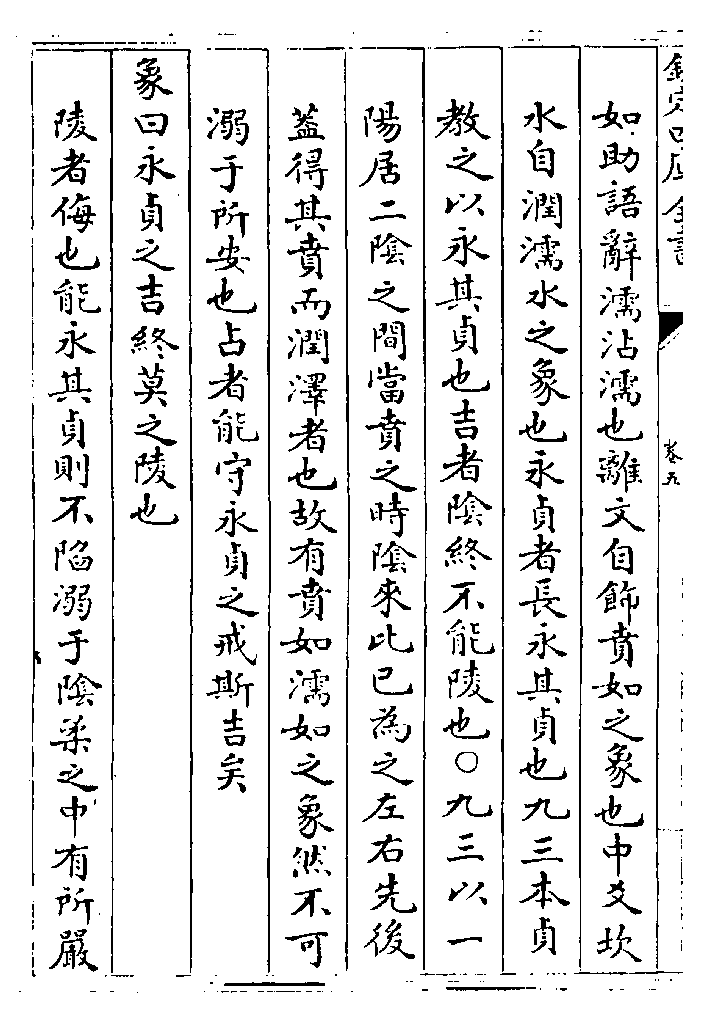 欽定四庫全書
卷五
如助語辭濡沾濡也離文自飾賁如之象也中爻坎
水自潤濡水之象也永貞者長永其貞也九三本貞
教之以永其貞也吉者陰終不能陵也○九三以一
陽居二陰之間當賁之時陰來比已為之左右先後
蓋得其賁而潤澤者也故有賁如濡如之象然不可
溺于所安也占者能守永貞之戒斯吉矣
象曰永貞之吉終莫之陵也
陵者侮也能永其貞則不陷溺于陰柔之中有所嚴